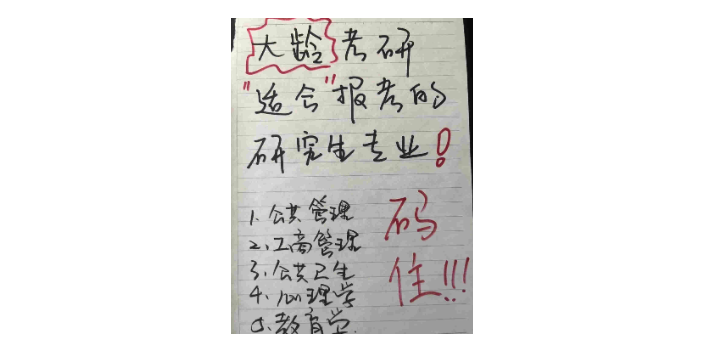 大龄考研
"适合"报考的
研究生专业!
1. 公共管理
2. 工商管理
3. 公共卫生
4. 心理学
5. 教育学
码
住!!!